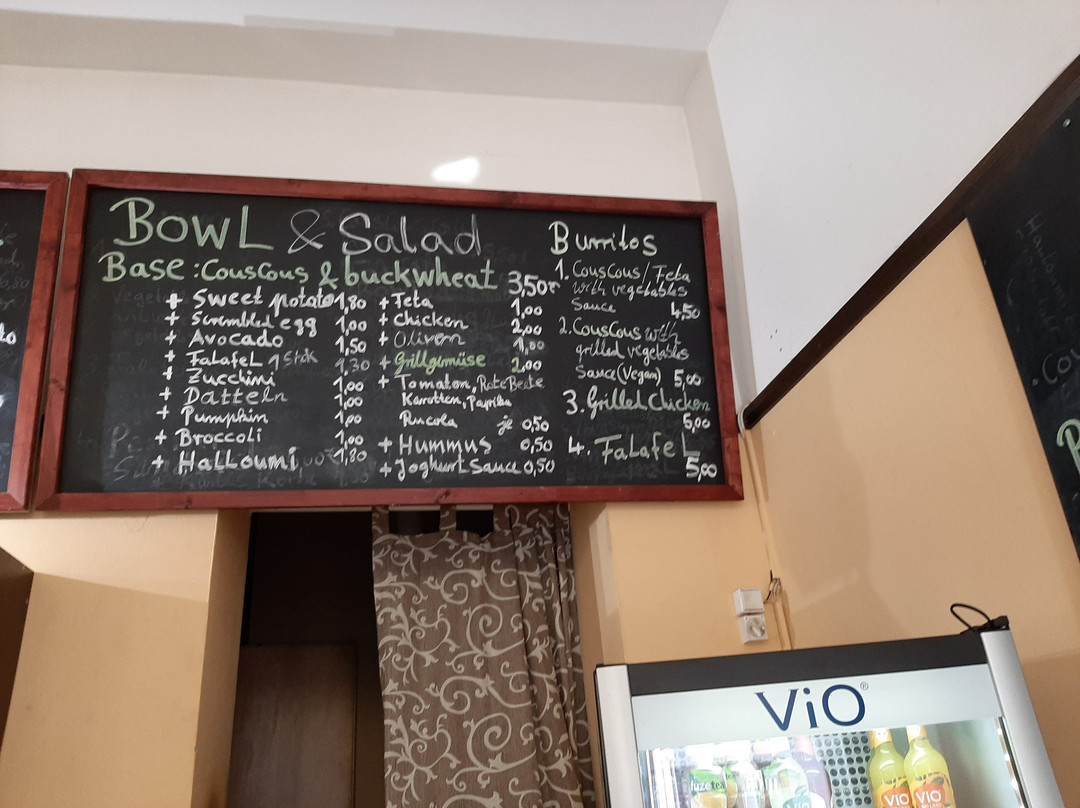 BowL & Salad
Base: Couscous & buckwheat 3,50
+ Sweet potato 1,80
+ Scrembled egg 1,00
+ Avocado 1,50
+ FalafeL 1 Stük 1,30
+ Zucchini 1,00
+ Datteln 1,00
+ Pumpkin 1,00
+ Broccoli 1,00
+ HaLLoumi 1,80
+ Feta 1,00
+ Chicken 2,00
+ Oliven 1,00
+ Grillgemüse 2,00
+ Tomaten, Rote Beete
Karotten, Paprika
Rucola je 0,50
+ Hummus 0,50
+ Joghurt Sauce 0,50
Burritos
1. CousCous/Feta
with vegetables
Sauce 4,50
2. CousCous with
grilled vegetables
Sauce (Vegan) 5,00
3. Grilled Chicken
5,00
4. FalafeL
5,00
ViO®
fuze tea
ViO
ViO
ViO